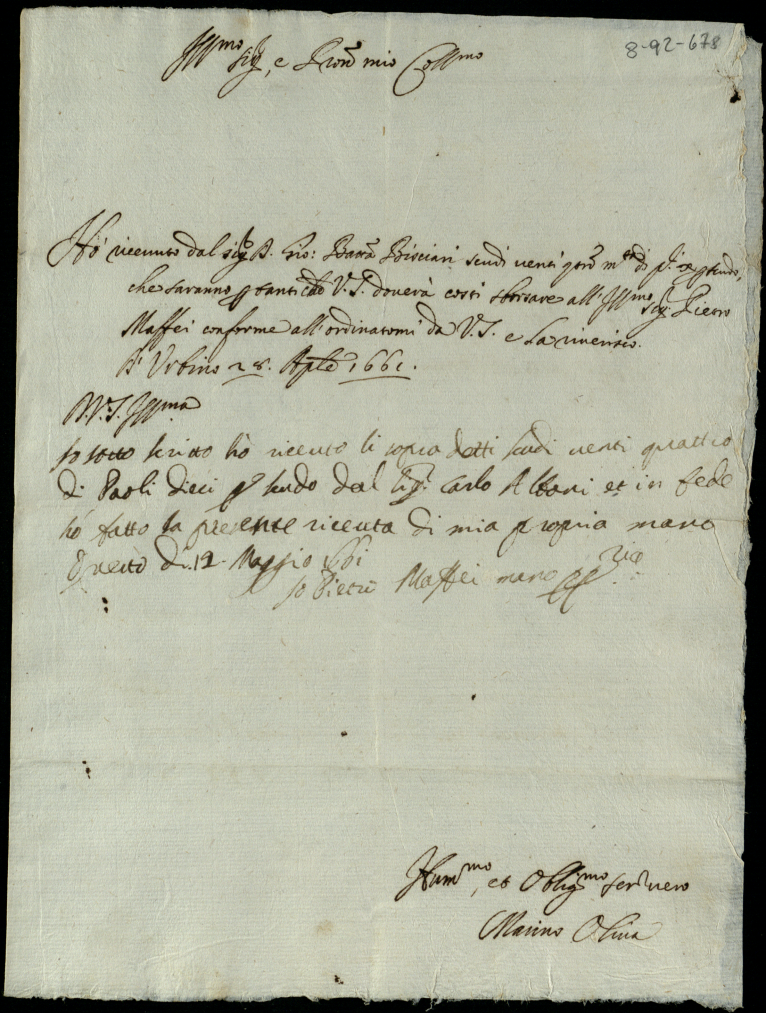 8-92-678
Ill.mo Sig.r, e Pron mio Coll.mo
Hò riceuuto dal sig.r D. Gio: Batta Bisciari scudi uenti qtro m.ta di p.li x p scudo,
che saranno p tanti che V.S. douerà costi sborsare all'Ill.mo sig.r Pietro
Maffei conforme all'ordinatomi da V.S. e la riuerisco.
D'Urbino 28. Aple 1661.
D.V.S. Ill.ma
Io sotto scritto hò riceuto li sopra detti scudi uenti quattro
di Paoli dieci p scudo dal Sig.r Carlo Albani et in fede
hò fatto la presente riceuta di mia propria mano
Questo dì 12 Maggio 1661
Io Pietro Maffei mano pp.ria
Hum.mo, et Oblig.mo ser.r uero
Marino Oliua